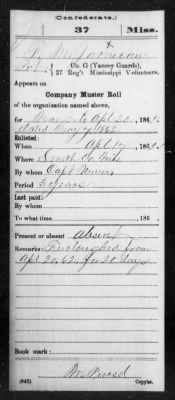 (Confederate.)
37 Miss.
Co. G (Yancey Guards),
37 Reg't Mississippi Volunteers.
Appears on
Company Muster Roll
of the organization named above,
for to Apl 30, 186
dated May 1862
Enlisted:
When Apl 186
Where Smith Co Miss
By whom Capt
Period 3 Years
Last paid:
By whom
To what time , 186
Present or absent Absent
Remarks: Furloughed from
Apl 20, 62, for 20 days
Book mark:
(642) Copyist.